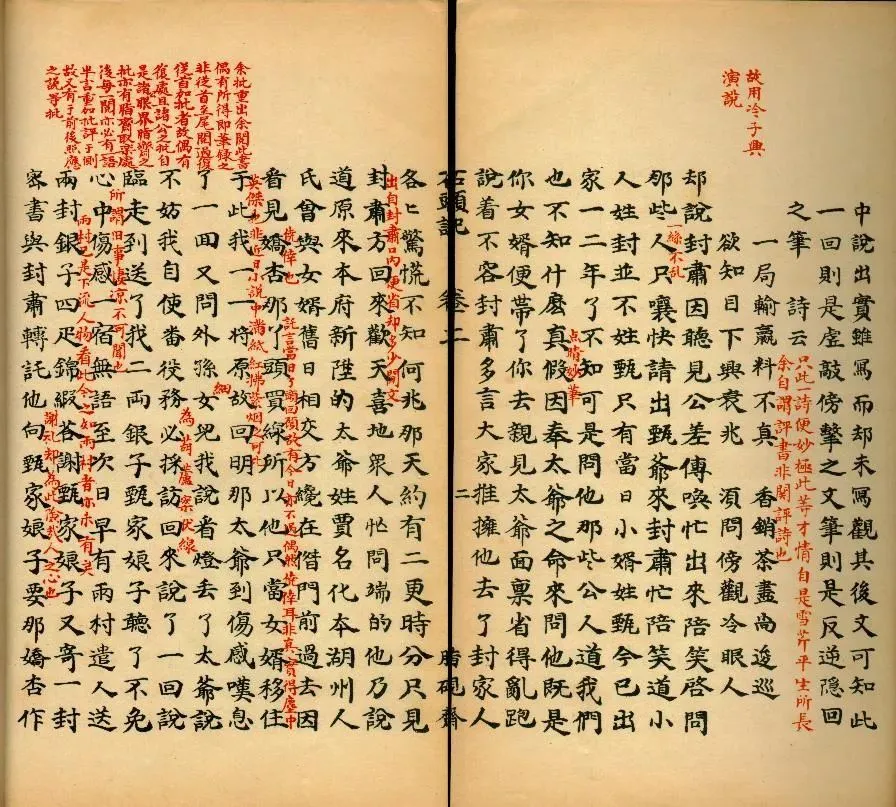 中說出實雖寫而却未寫觀其後文可知此
一回則是虛敲傍擊之文筆則是反逆隱回
之筆　詩云
只此一詩便妙極此等才情自是雪芹平生所長
余自謂評書非関評詩也
一局輸贏料不真　香銷茶盡尚逡巡
故用冷子興
演說
欲知目下興衰兆　湏問傍觀冷眼人
却說封肅因聽見公差傳喚忙出來陪笑啓問
一絲不乱
那些人只嚷快請出甄爺來封肅忙陪笑道小
人姓封並不姓甄只有當日小婿姓甄今已出
家一二年了不知可是問他那些公人道我們
点睛妙筆
也不知什麽真假因奉太爺之命來問他既是
你女婿便帶了你去親見太爺面稟省得亂跑
說着不容封肅多言大家推擁他去了封家人
石頭記　卷二　二　脂硯齋
各匕驚慌不知何兆那天約有二更時分只見
出自封肅口内便省却多少閒文
封肅方回來歡天喜地衆人忙問端的他乃說
道原來本府新陞的太爺姓賈名化本湖州人
氏曾與女婿舊日相交方纔在偺門前過去因
僥倖也
託言當日丫頭回顧故有今日亦不過偶然僥倖耳非真實得塵中
看見嬌杏那丫頭買線所以他只當女婿移住
英傑也非近日小說中滿紙紅拂紫烟之可比
余批重出余閱此書
偶有所得即筆錄之
非從首至尾閱過復
從首加批者故偶有
復處且諸公之批自
是諸公眼界脂齋之
批亦有脂齋取樂處
後每一閱亦必有一語
半言重加批評于側
故又有于前後照應
之說等批
于此我一一將原故回明那太爺到傷感嘆息
細
了一回又問外孫女兒我說看燈丢了太爺說
為葫蘆案伏線
不妨我自使番役務必採訪回來說了一回話
臨走到送了我二兩銀子甄家娘子聽了不免
所謂旧事凄凉不可聞也
心中傷感一宿無語至次日早有雨村遣人送
雨村已是下流人物看此今之如雨村者亦未有矣
兩封銀子四疋錦緞荅謝甄家娘子又寄一封
謝礼却為此險哉人之心也
宻書與封肅轉託他向甄家娘子要那嬌杏作